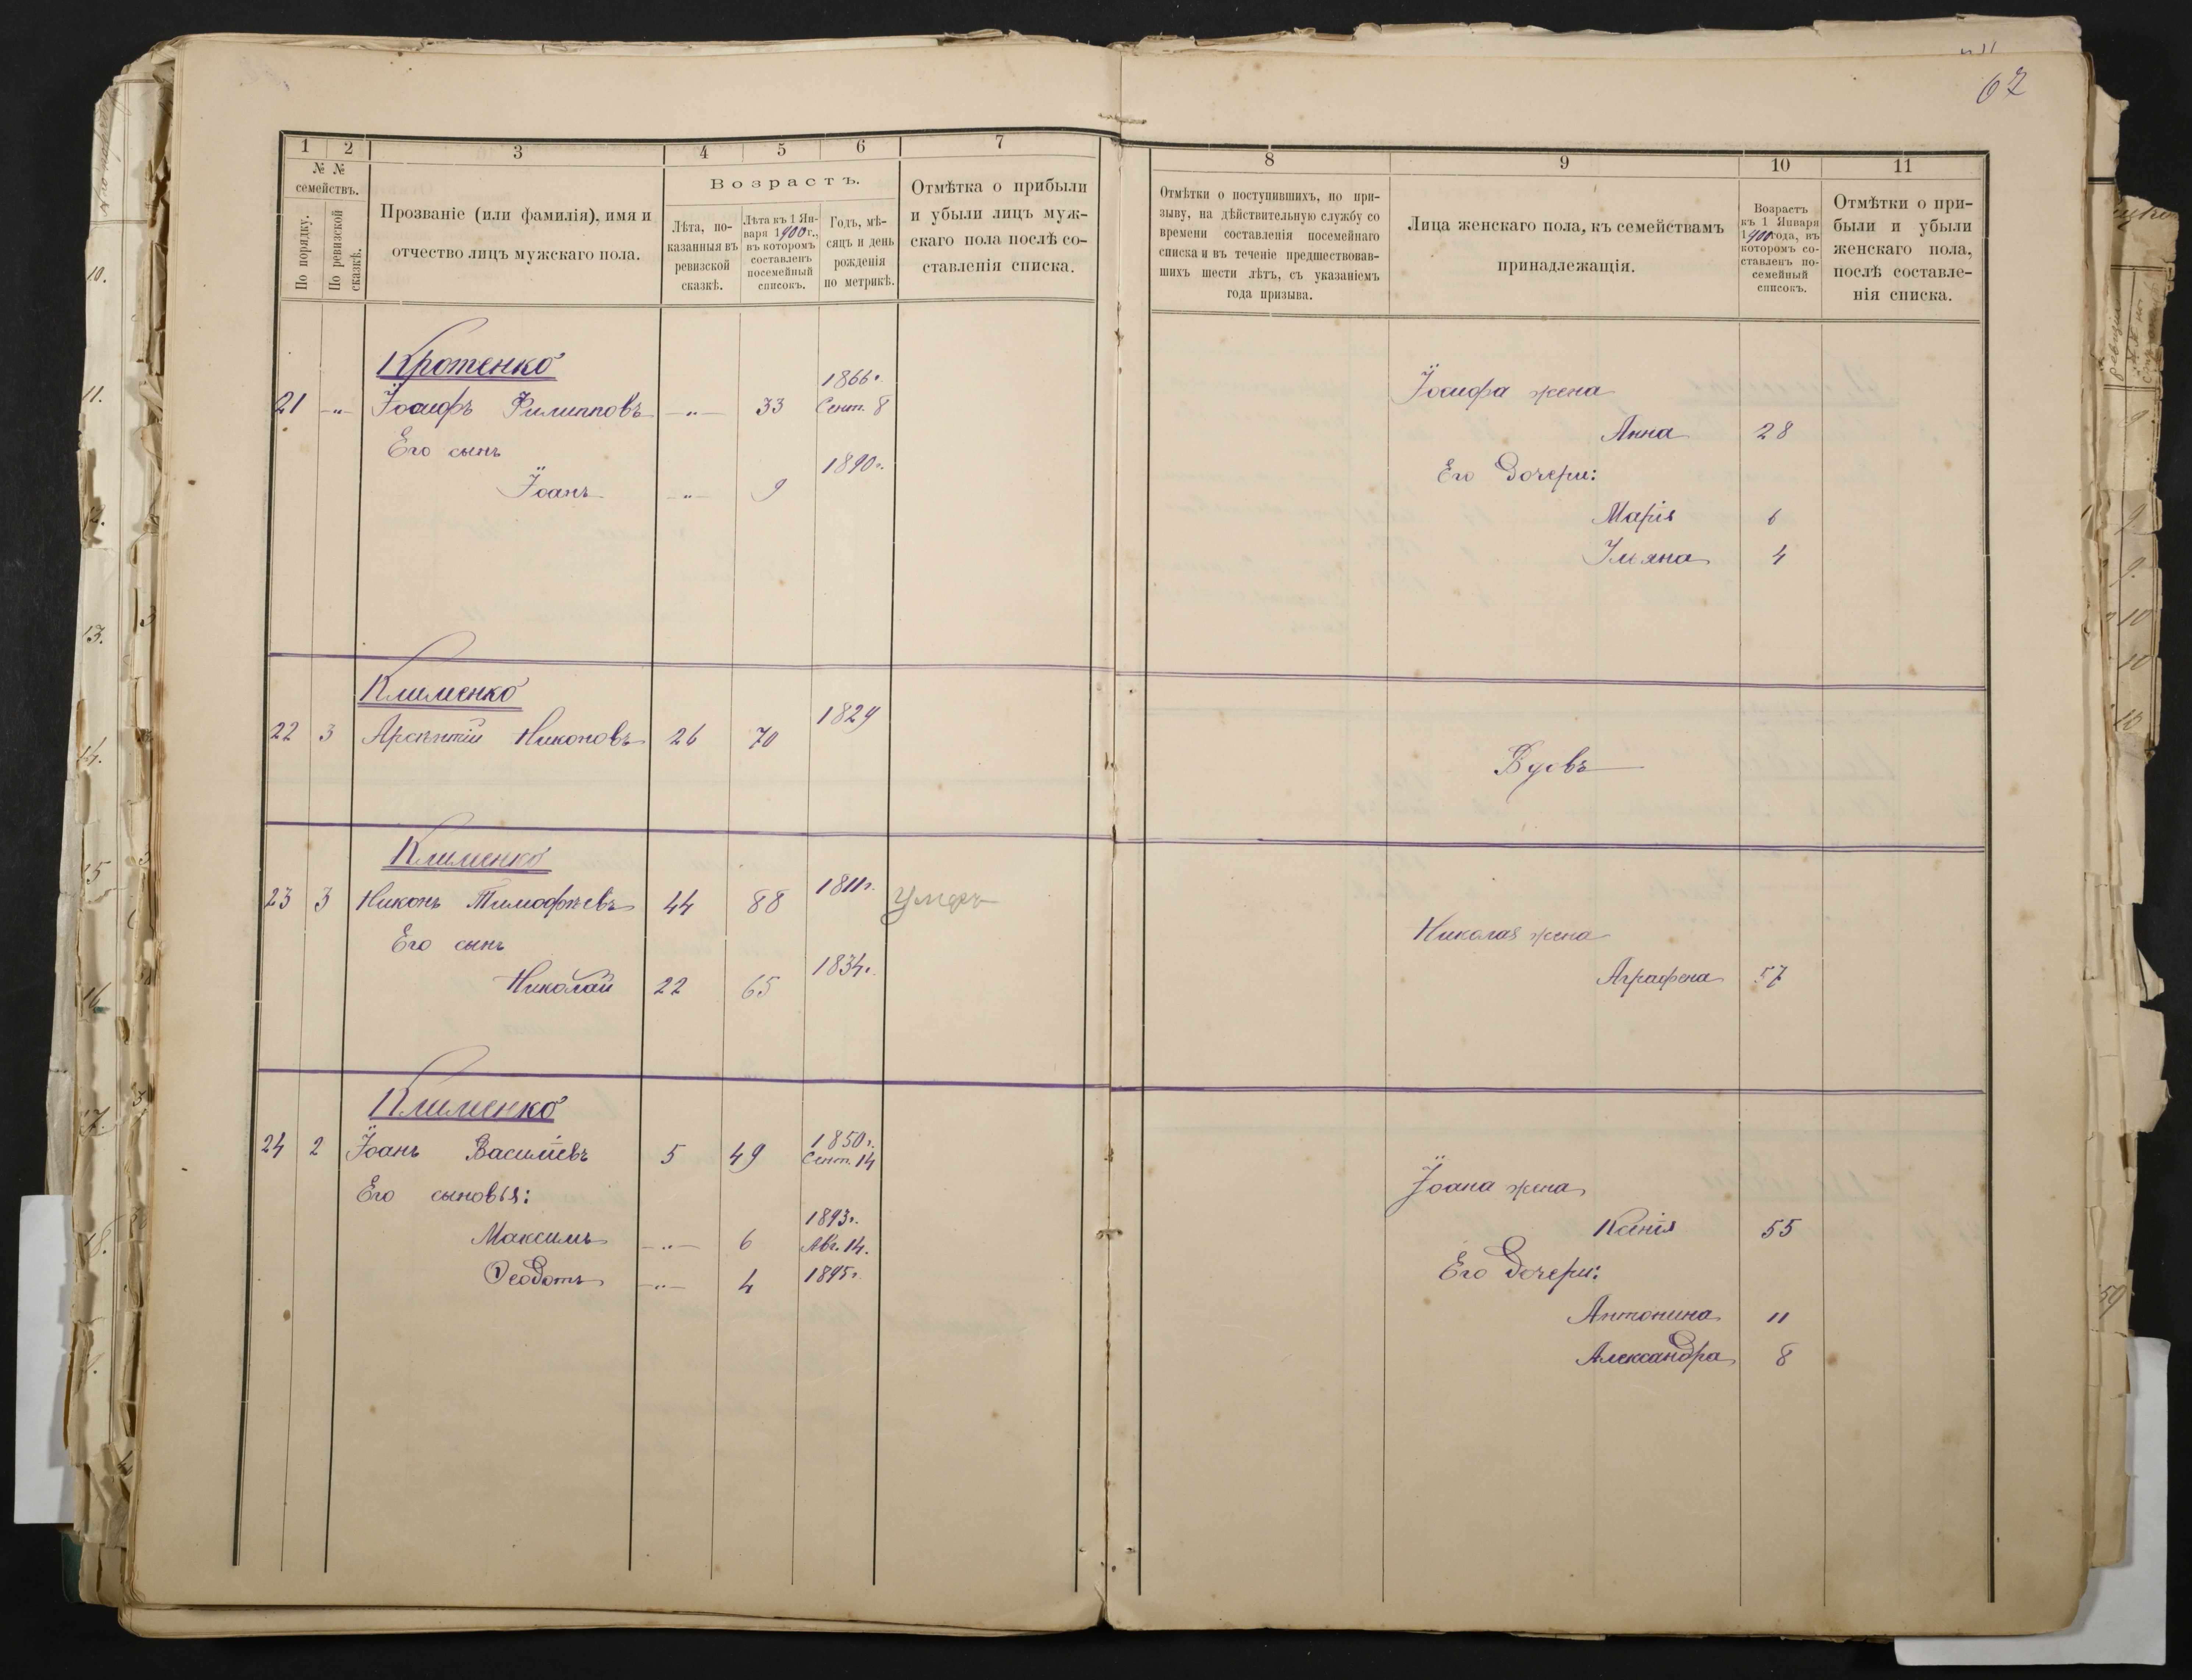 67
1 2 3 4 5 6 7
№ №
семействъ.
По порядку.
По ревизской сказкѣ.
Прозваніе (или фамилія), имя и
отчество лицъ мужскаго пола.
Возрастъ.
Лѣта, по-
казанныя въ
ревизской
сказкѣ.
Лѣта къ 1 Ян-
варя 1900 г.,
въ которомъ
составленъ
посемейный
списокъ.
Годъ, мѣ-
сяцъ и день
рожденія
по метрикѣ.
Отмѣтка о прибыли
и убыли лицъ муж-
скаго пола послѣ со-
ставленія списка.
8 9 10 11
Отмѣтки о поступившихъ, по при-
зыву, на дѣйствительную службу со
времени составленія посемейнаго
списка и въ теченіе предшествовав-
шихъ шести лѣтъ, съ указаніемъ
года призыва.
Лица женскаго пола, къ семействамъ
принадлежащія.
Возрастъ
къ 1 Января
1900 года, въ
которомъ со-
ставленъ по-
семейный
списокъ.
Отмѣтки о при-
были и убыли
женскаго пола,
послѣ составле-
нія списка.
Кротенко
1866г.
21 -"- Іосифъ Филипповъ -"- 33 Сент. 8
Его сынъ
1890г.
Іоанъ -"- 9
Іосифа жена
Анна 28
Его дочери:
Марія 6
Ульяна 4
Клименко
1829
22 3 Арсентій Никоновъ 26 70
Вдовъ
Клименко
1811г.
23 3 Никонъ Тимофѣевъ 44 88 Умеръ
Его сынъ
1834г.
Николай 22 65
Николая жена
Аграфена 57
Клименко
1850г.
24 2 Іоанъ Василіевъ 5 49 Сент. 14
Его сыновья:
1893г.
Максимъ -"- 6 Авг. 14.
Ѳеодотъ -"- 4 1895г.
Іоана жена
Ксенія 55
Его дочери:
Антонина 11
Александра 8